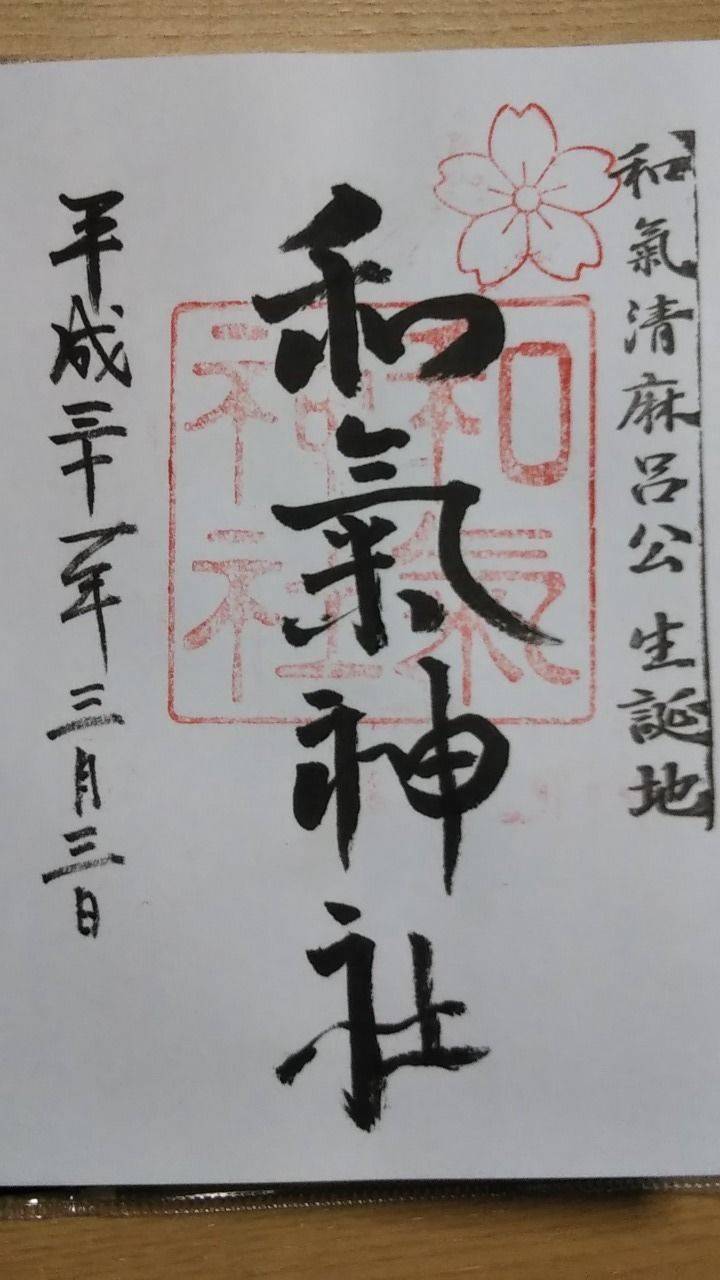 和氣清麻呂公生誕地
和氣神社
和氣
神社
平成三十一年三月三日